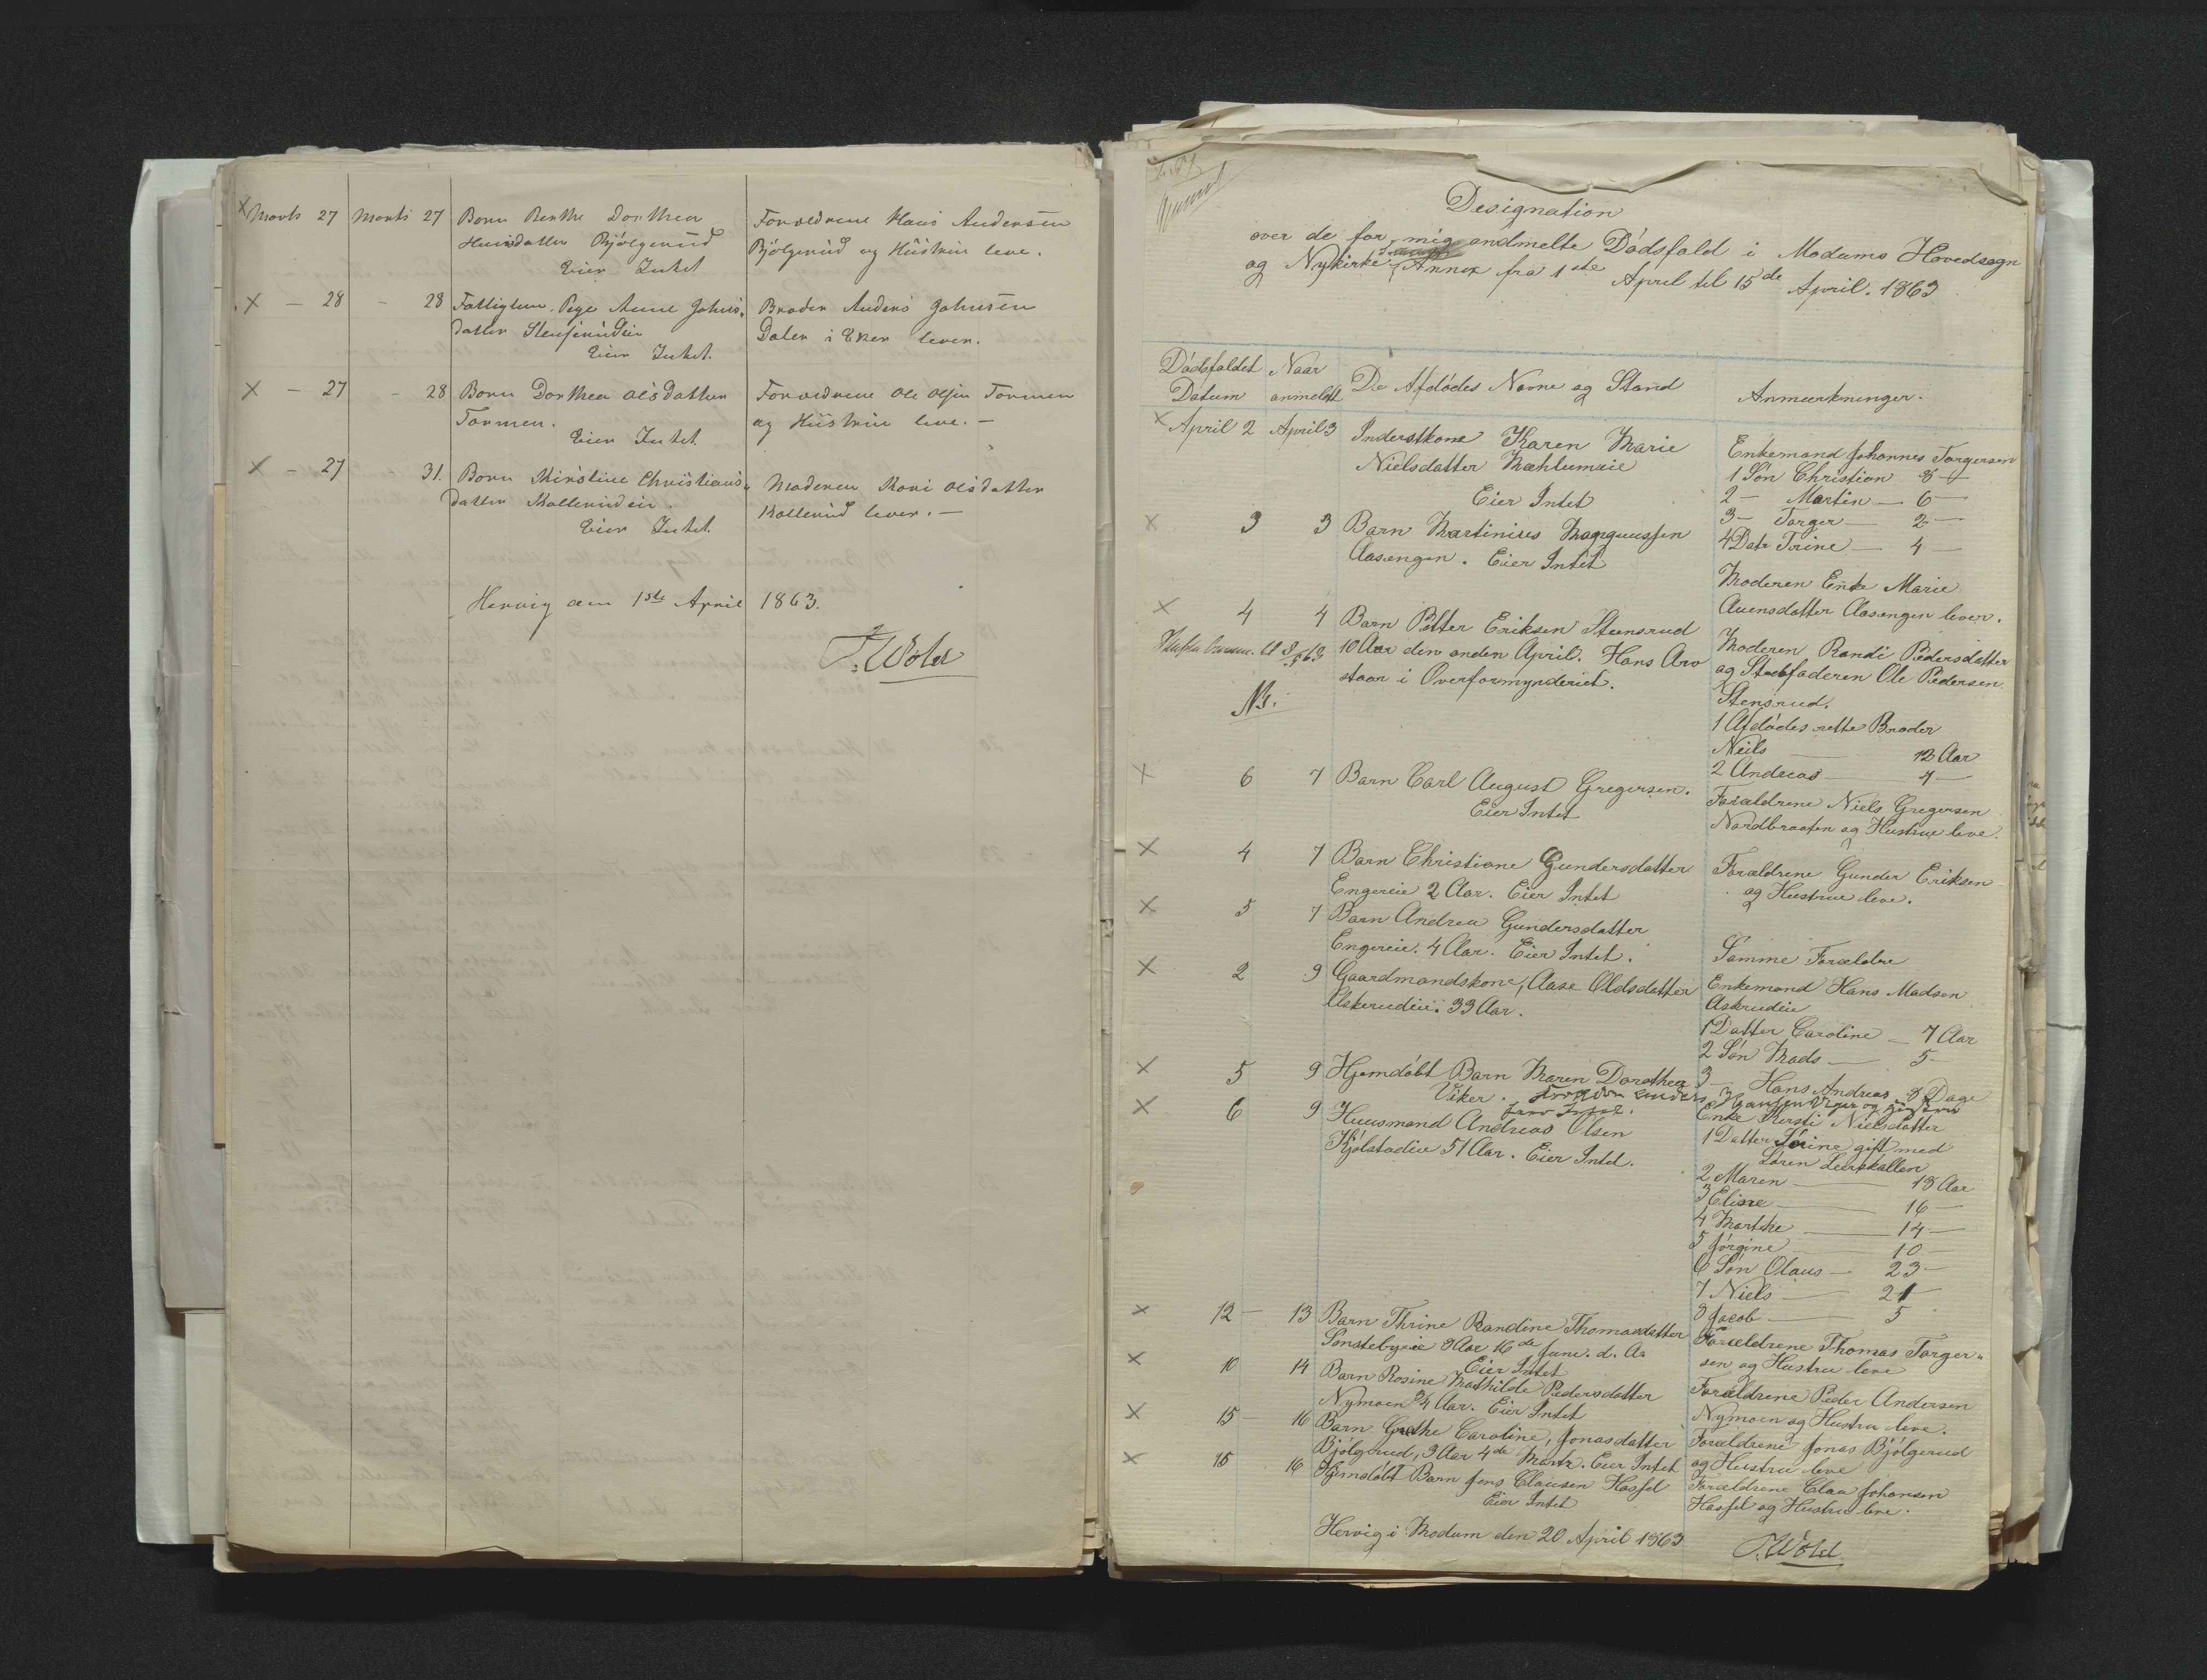 Marts 27 Marts 27 Barn Berthe Dorthea Forældrene Hans Andersen
Hansdatter Bjölgerud Bjölgerud og Hüstrue leve.
Eier Intet
- 28 - 28 Fattiglem. Pige Anne Johns- Broder Anders Johnsen
datter Stensrudeie Dalen i Eker lever.
Eier Intet.
- 27 - 28 Barn Dorthea Olsdatter Forældrene Ole Olsen Formen
Formen. og Hüstrue leve. -
Eier Intet
- 27 - 31. Barn Kirstine Christians- Moderen Kari Olsdatter
datter Kollerudeie. Kollerud lever. -
Eier Intet
Hervig den 1ste April 1863.
T. Wold
Designation
over de for mig anmelte Dödsfald i Modums Hovedsogn
og Nykirke Annex fra 1ste April til 15de April. 1863
Dödsfaldet Naar De Afdödes Navne og Stand Anmærkninger.
Datum anmeldt
April 2 April 3 Inderstkone Karen Marie Enkemand Johannes Torgersen
Nielsdatter Mæhlumeie 1 Sön Christian 8 -
Eier Intet 2 - Martin - 6 -
3 - Torger - 2 -
4 Datr Torine - 4 -
3 3 Barn Martinius Magnussen Moderen Enke Marie
Aasengen. Eier Intet Auensdatter Aasengen lever.
4 4 Barn Petter Eriksen Steensrud Moderen Randi Pedersdatter
10 Aar den anden April. Hans Arv og Stedfaderen Ole Pedersen
staar i Overformynderiet. Stensrud.
NB. 1 Afdödes rette Broder
Neils 12 Aar
2 Andreas 7 -
6 7 Barn Carl August Gregersen. Forældrene Niels Gregersen
Eier Intet Nordbraaten og Hustrue leve.
4 7 Barn Christiane Gundersdatter Forældrene Gunder Eriksen
Engereie 2 Aar. Eier Intet og Hustrue leve.
5 7 Barn Andrea Gundersdatter
Engereie. 4 Aar. Eier Intet. Samme Forældre
2 9 Gaardmandskone, Aase Oldsdatter Enkemand Hans Madsen
Askerudeie. 33 Aar. Askerudeie
1 Datter Caroline - 7 Aar
2 Sön Mads - 5 -
3 - Hans Andreas - 8 Dage
5 9 Hjemdöbt Barn Maren Dorothea
Viker.
6 9 Huusmand Andreas Olsen Enke Kersti Nielsdatter
Kjölstadeie 51 Aar. Eier Intet. 1 Datter Sörine gift med
Sören Leerskallen
2 Maren 18 Aar
3 Elisæ 16 -
4 Marthe 14 -
5 Jörgine 10 -
6 Sön Olaus - 23 -
7 Niels 21 -
8 Jacob 5
12 - 13 Barn Thrine Randine Thomasdatter Forældrene Thomas Torger-
Sönstebyeie 8 Aar 16de Juni. d. A. sen og Hustru leve
Eier Intet
10 14 Barn Rosine Mathilde Pedersdatter Forældrene Peder Andersen
Nymoen 3/4 Aar. Eier Intet Nymoen og Hustru leve.
15 - 16 Barn Grethe Caroline, Jonasdatter Forældrene Jonas Bjölgerud
Bjölgerud, 3 Aar 4de Marts. Eier Intet og Hustru leve
15 16 Hjemdöbt Barn Jens Clausen Hassel Forældrene Claus Johansen
Eier Intet Hassel og Hustru leve.
Hervig i Modum den 20 April 1863
T. Wold